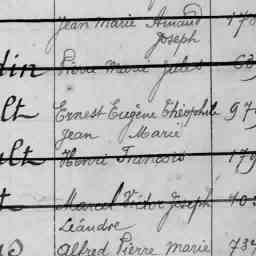 Jean Marie Arnaud
Joseph
din Pierre Marie Jules
lt Ernest Eugène Théophile 97
Jean Marie
ult Henri François 179
t Marcel Victor Joseph 40
Léandre
Alfred Pierre Marie 737